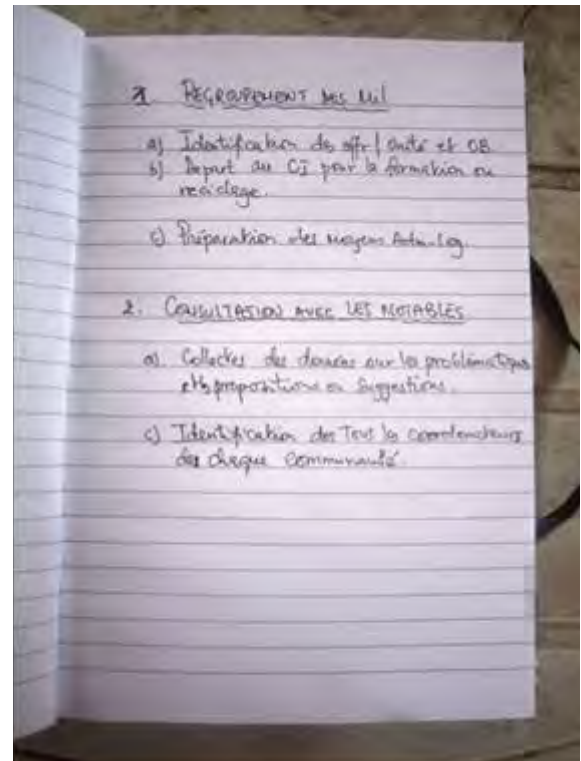 1 REGROUPEMENT DES Mil
a) Identification des offr/Unité et OB
b) Depart au CI pour la formation ou
recidage.
c) Préparation des moyens Adm-Log.
2. CONSULTATION AVEC LES NOTABLES
a). Collectes des donnees sur les problématiques
et propositions ou Suggestions.
c) Identification des Tous les coordonateurs
des chaque Communauté.